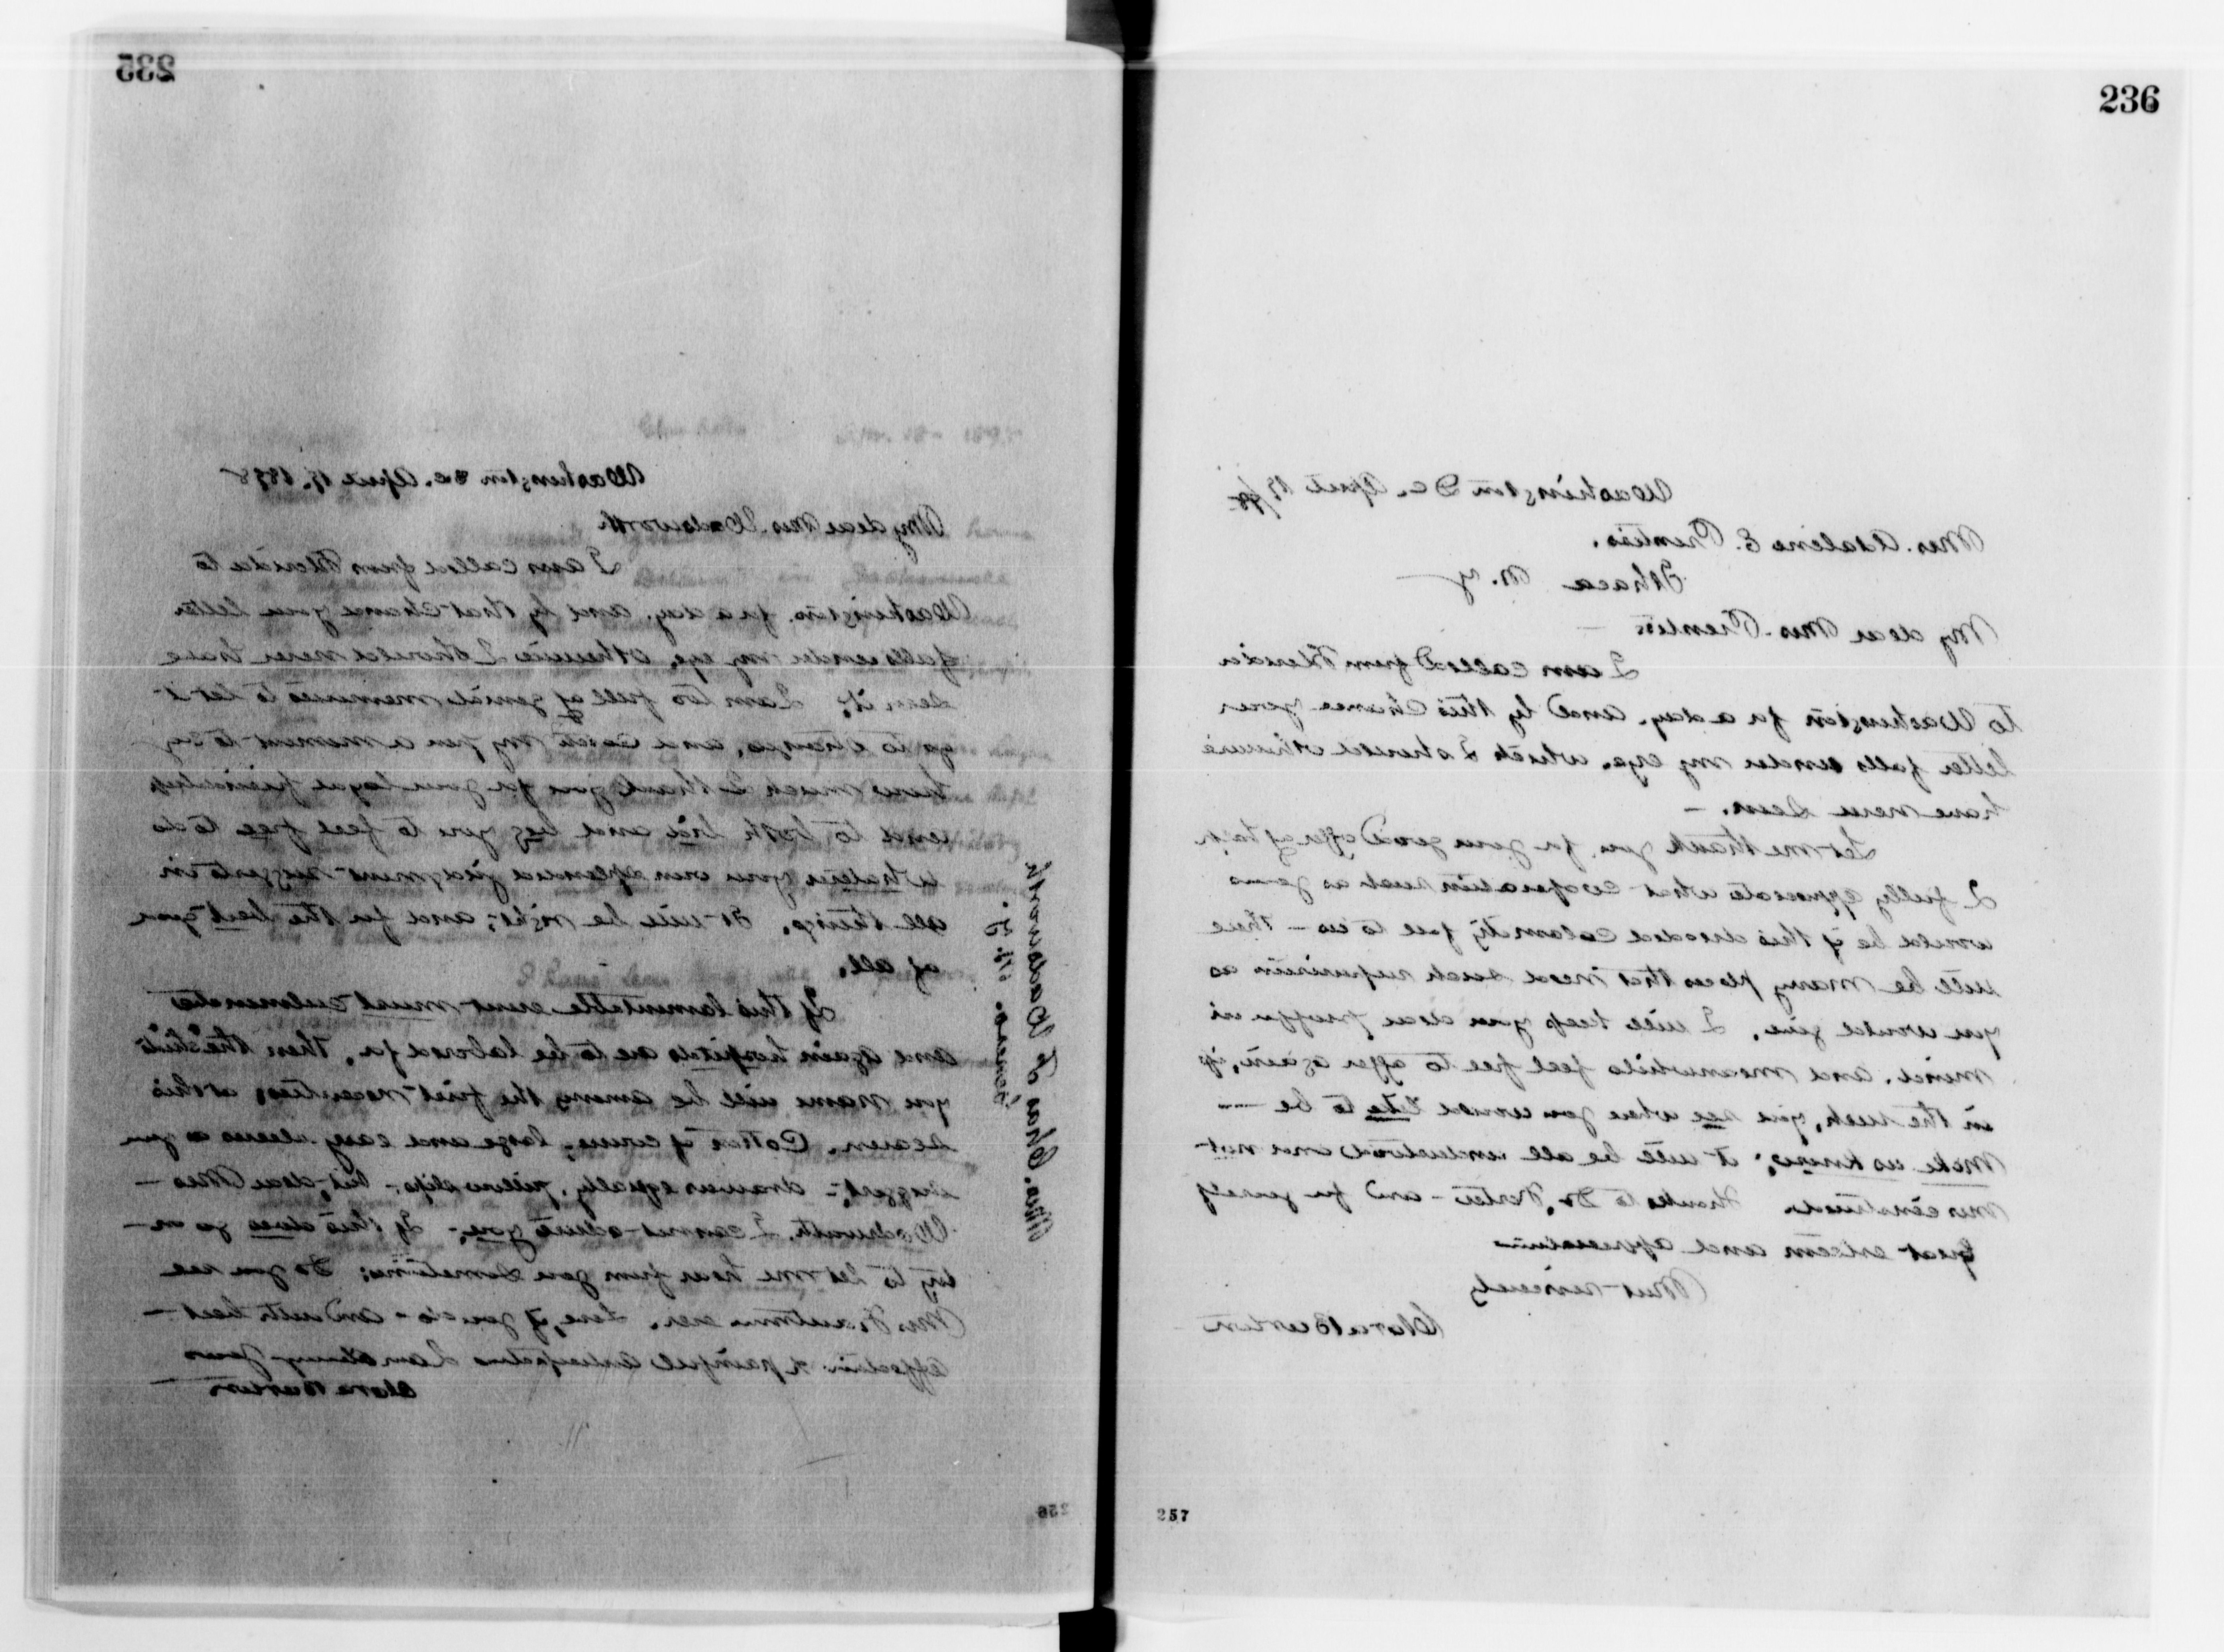 235
Washington D.C. April 19. 1898
My dear Mrs. Wadsworth
I am called from Florida to
Washington. for a day. and by that chance your letter
falls under my eye, otherwise I should never have
seen it. I am too full of genial memories to let it
go to strange, and catch my pen a moment to say
how much I thank you for your loyal friendship
and to both bid and beg you to feel free to do
whatever your own splendid judgment suggests in
all things. It will be right, and for the best you
of all.
If this lamentable event must culminate
and again hospitals are to be labored for. Then the
you name will be among the first necessities, at this
season. Cotton of course, large and easy sleeves as you
suggest - drawers equally, pillow slips - but, dear Mrs
Wadsworth, I cannot advise you, - If this does go on
try to let me hear from you sometime: Do you see
Mrs. ever. Love, if you do - and with best
affection & painful anticipation I am always yours
Clara Barton
Mrs. Chas F Wadsworth
Geneseo. N. Y.
256
236
Washington D C. April 19/98
Mrs. Adaline E. Prentiss.
Ithaca N. Y
My dear Mrs. Prentiss
I am called from Florida
to Washington for a day. and by this chance your
letter falls under my eye. which I should otherwise
have never seen. —
Let me thank you for your good offer of help
I fully appreciate what cooperation such as yours
would be if this dreaded calamity fall to us - there
will be many places that need such supervision as
you would give. I will keep your dear proffer in
mind. and meanwhile feel free to offer again, if,
in the rush, you see where you would like to be —
Make us know; it will be all understood and not
misconstrued. Thanks to Dr. - and for yourself
great esteem and appreciation
Most sincerely
Clara Barton
257